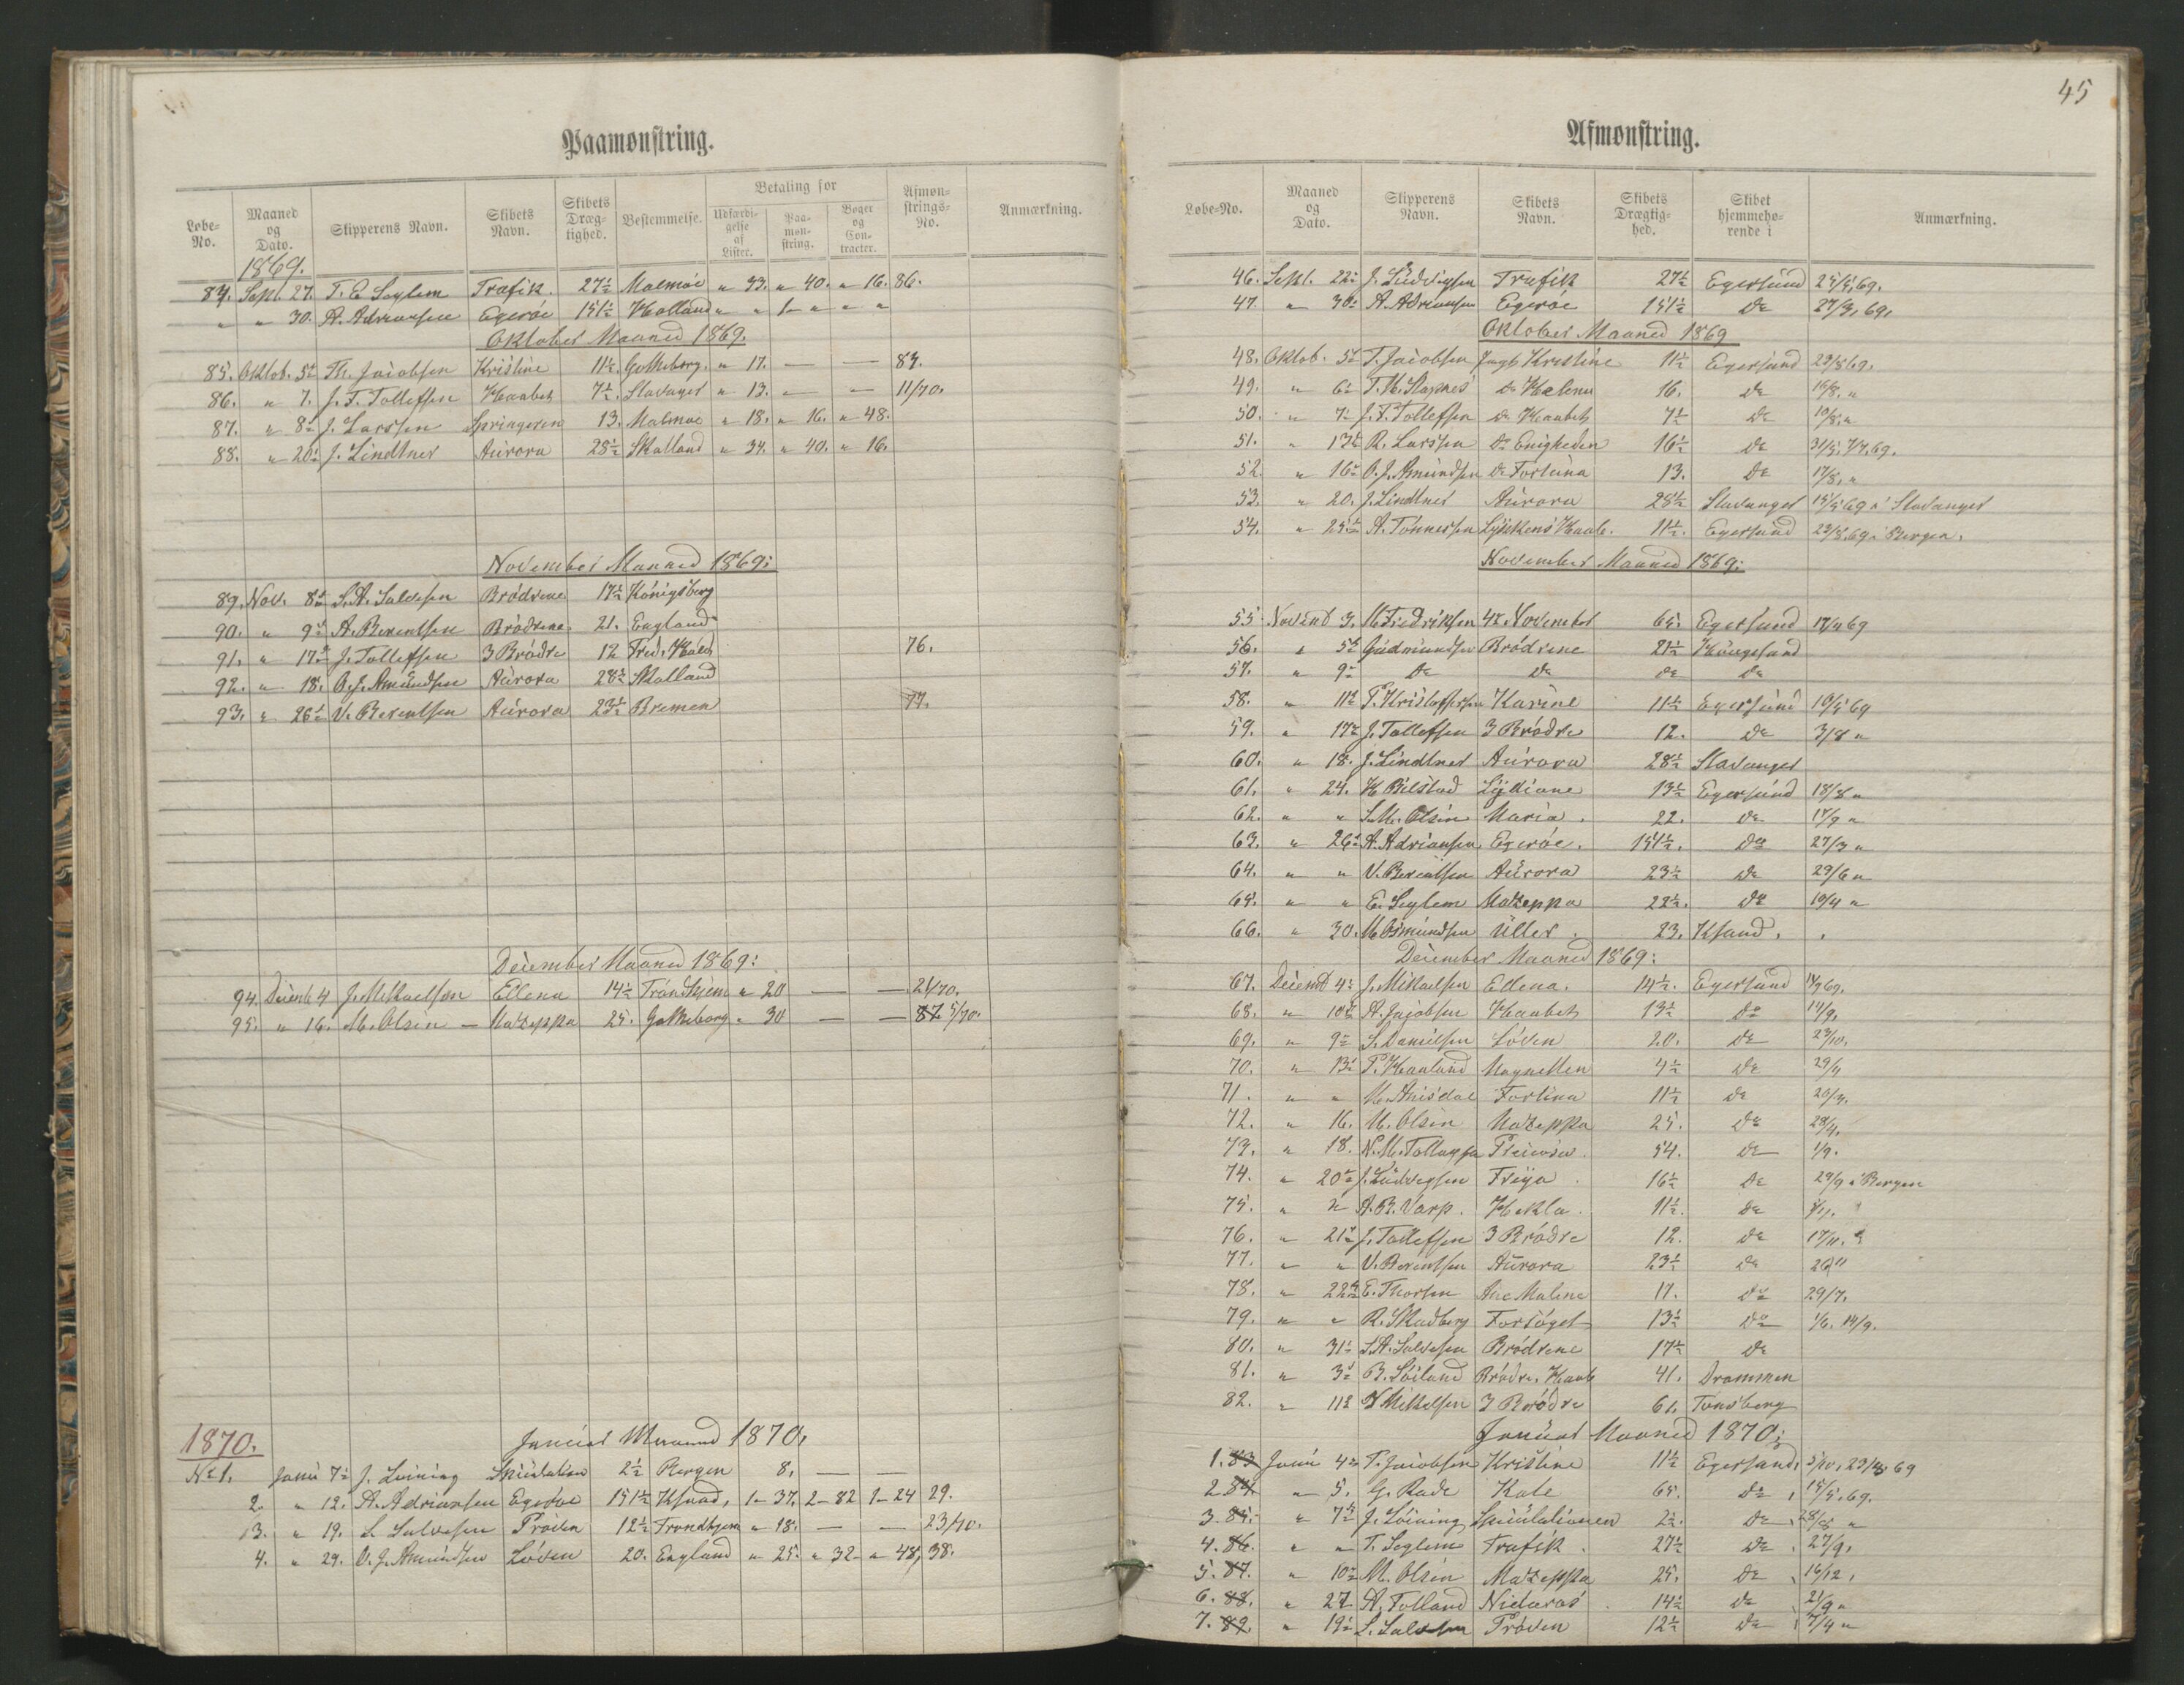 45
Paamønstring.
Løbe-No. Maaned og Dato. Skipperens Navn. Skibets Navn. Skibets Drægtighed. Bestemmelse. Betaling for Udfærdigelse af Lister. Paamønstring. Bøger og Contracter. Afmønstrings-No. Anmærkning.
1869.
84. Sept. 27. T. E. Seglem Trafik. 27½ Malmöe " 33. " 40. " 16. 86.
" " 30. A. Adriansen Egeröe 151½ Holland " " 1 " " "
Oktober Maaned 1869.
85. Oktob. 5te Th. Jacobsen Kristine 11½. Gottheborg. " 17. — — 83.
86. " 7. J. T. Tollefsen Haabet 7½. Stavanger " 13. " — 11/70.
87. " 8de J. Larssen Springeren 13. Malmöe " 18. " 16. " 48.
88. " 20de J. Lindtner Aurora 28½ Skotland " 34. " 40. " 16.
November Maaned 1869:
89. Nov. 8de S. A. Salvesen Brödrene 17½ Königsberg
90. " 9de A. Berentsen Brödrene. 21. England
91. " 17de J. Tollefsen 3 Brödre 12 Fred. Hald 76.
92. " 18. O. J. Amundsen Aurora 28½ Skotland
93. " 26de V. Berentsen Aurora 23½ Bremen 77.
December Maaned 1869:
94. Decemb 4 J. Mikaelsen Ellena 14½ Trondhjem " 20 — — 21/70.
95. " 16. M. Olsen — Mazeppa 25. Gottheborg " 30 — — 87 5/70.
1870.
Januar Maaned 1870.
No 1. Janu 7de J. Leining Speculation 2½ Bergen 8. — —
2. " 12. A. Adriansen Egeröe 151½ Ksand, 1 - 37. 2 - 82 1 - 24 29.
3. " 19. L. Salvesen Pröven 12½ Trondhjem " 18. — — 23/70.
4. " 29. O. J. Amundsen Löven 20. England " 25. " 32 " 48, 38.
Afmønstring.
Løbe-No. Maaned og Dato. Skipperens Navn. Skibets Navn. Skibets Drægtighed. Skibet hjemmehørende i Anmærkning.
46. Sept. 22de J. Ludvigsen Trafik 27½ Egersund 25/5. 69.
47. " 30te A. Adriansen Egeröe 151½ do 27/3. 69.
Oktober Maaned 1869
48. Oktob. 5te T. Jacobsen Jagt Kristine 11½ Egersund 23/8 69.
49. " 6te T. M. Stapnes do Helena 16. do 16/8. "
50. " 7de J. T. Tollefsen do Haabet 7½ do 10/8. "
51. " 13de R. Larssen do Enigheden 16½ do 31/3. 7/7. 69.
52. " 16de O. J. Amundsen do Fortuna 13. do 17/8. "
53. " 20. J. Lindtner Aurora 28½ Stavanger 15/5 69 i Stavanger
54. " 25de A. Tönnessen Lykkens Haab. 11½. Egersund 23/8. 69 i Bergen.
November Maaned 1869:
55 Novemb 3. M. Fredriksen 4de November 65. Egersund 17/4 69
56. " 5te Gudmundsen Brödrene 21½ Haugesund
57. " 9de do do do do
58. " 11te P. Kristoffersen Karine 11½ Egersund 10/5 69
59. " 17de J. Tollefsen 3 Brödre 12. do 3/8 "
60. " 18. J. Lindtner Aurora 28½ Stavanger
61. " 24. H. Bilstad Lydiane 13½ Egersund 18/8 "
62. " " S. M. Olsen Maria. 22. do 17/9 "
63. " 26de A. Adriansen Egeröe. 151½. do 27/3 "
64. " " V. Berentsen Aurora 23½ do 29/6 "
65. " " E. Seglem Mazeppa 22½. do 10/4 "
66. " 30. M. Osmundsen Uller. 23. Ksand.
December Maaned 1869:
67. Decemb 4de J. Mikaelsen Ellena. 14½. Egersund 69.
68. " 10de A. Jacobsen Haabet 13½ do 14/9.
69. " 9de S. Danielsen Löven 20. do 23/10.
70. " 13de P. Haaland Magnetten 4½ do 29/4
71. " " M. Anisdal Fortuna 11½ do 20/3.
72. " 16. M. Olsen Mazeppa 25. do 28/4.
73. " 18. N. M. Tollagsen Preciosa. 54. do 1/9.
74. " 20de J. Ludvigsen Freya. 16½ do 29/9 i Bergen
75. " " A. B. Varp. Hekla. 11½. do
76. " 21de J. Tollefsen 3 Brödre 12. do 17/11.
77. " " V. Berentsen Aurora 23½ do 26/11
78. " 22de E. Thorsen Ane Malene 17. do 29/7.
79. " " R. Skadberg Forsöget 13½ do 1/6. 14/9.
80. " 31te S. A. Salvesen Brödrene 17½ do
81. " 3de B. Löiland Brödre. Haab 41. Drammen
82. " 11te Mikkelsen 3 Brödre 61. Tonsberg
Januar Maaned 1870:
1. 83 Janu 4de T. Jacobsen Kristine 11½ Egersund, 5/10, 23/8 69
2. 84 " 5. G. Rade Kate 65. do, 15/5. 69.
3. 85. " 7de J. Löining Speculationen 2½. do, 28/8 "
4. 86. " " T. Seglem Trafik. 27½ do, 27/9.
5. 87. " 10de M. Olsen Mazeppa 25. do 16/12.
6. 88. " 27 A. Tolland Nidaros. 14½ do 21/9 "
7. 89. " 19de L. Salvesen Pröven 12½ do 7/4 "